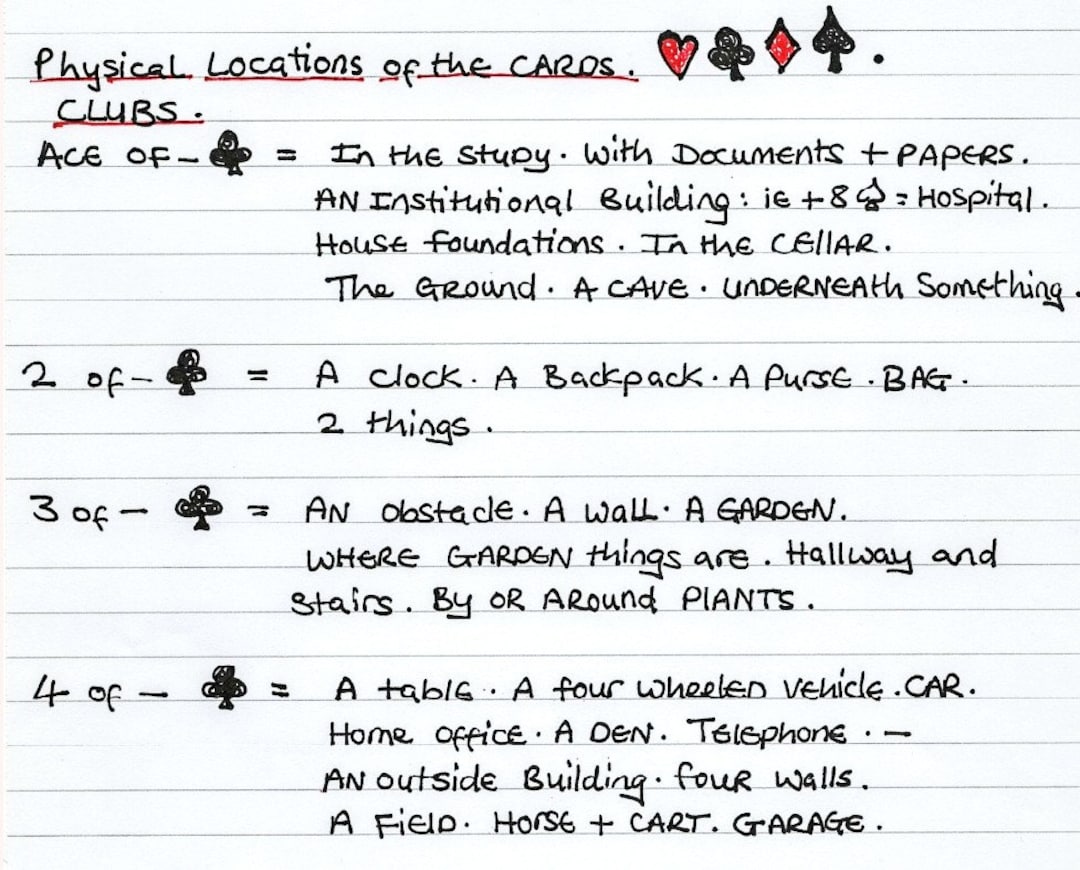 Physical Locations of the CARDS. ♥ ♣ ♦ ♠.
CLUBS.
ACE OF - ♣ = In the Study. With Documents + PAPERS.
AN Institutional Building: ie + 8 ♤ = Hospital.
House foundations. In the CEllAR.
The Ground. A CAVE. UNDERNEAth Something.
2 of - ♣ = A clock. A Backpack. A Purse. BAG.
2 things.
3 of - ♣ = AN obstacle. A wall. A GARDEN.
WHERE GARDEN things are. Hallway and
Stairs. By OR ARound PlANTS.
4 of - ♣ = A table. A four wheeleD Vehicle. CAR.
Home office. A DEN. Telephone. -
AN outside Building. fouR walls.
A FielD. Horse + CART. GARAGE.